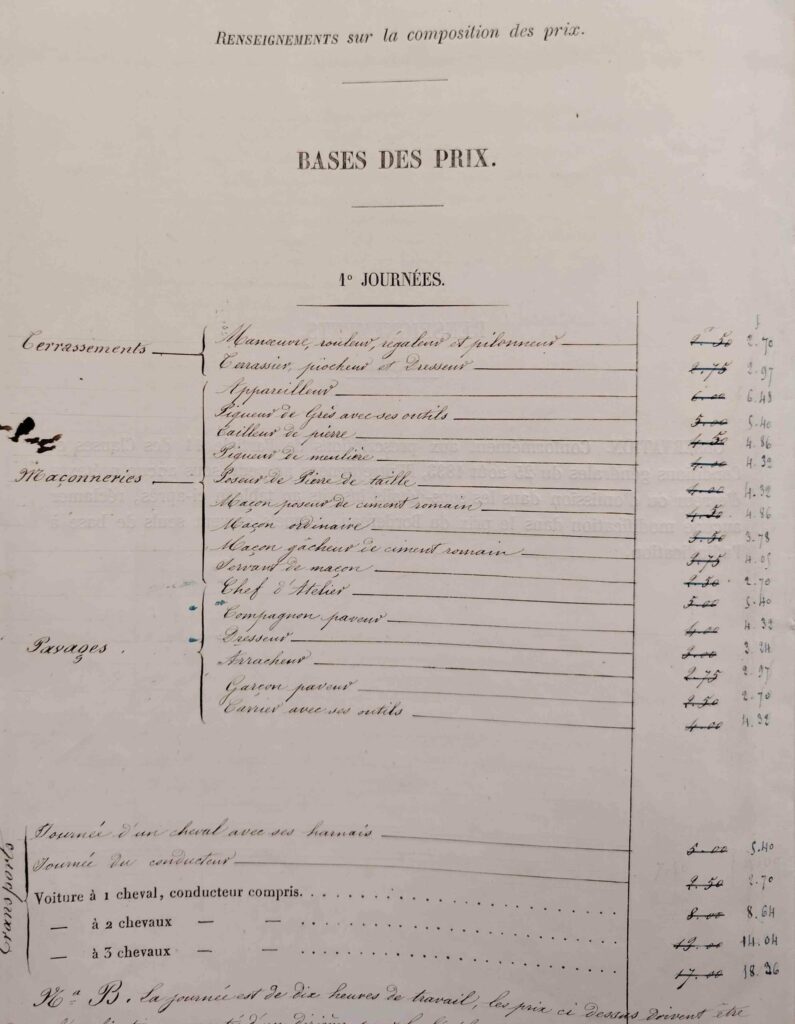 RENSEIGNEMENTS sur la composition des prix.
BASES DES PRIX.
1º JOURNÉES.
Terrassements
Manœuvre, rouleur, régaleur et pilonneur 2.50 2.70
Terrassier, piocheur et Dresseur 2.75 2.97
Appareilleur 6.00 6.48
Piqueur de Grès avec ses outils 5.00 5.40
Tailleur de pierre 4.50 4.86
Piqueur de meulière 4.00 4.32
Maçonneries
Poseur de Pierre de taille 4.00 4.32
Maçon poseur de ciment romain 4.50 4.86
Maçon ordinaire 3.50 3.78
Maçon gâcheur de ciment romain 3.75 4.05
Servant de maçon 2.50 2.70
Chef d'Atelier 5.00 5.40
Compagnon paveur 4.00 4.32
Pavages.
Dresseur 3.00 3.24
Arracheur 2.75 2.97
Garçon paveur 2.50 2.70
Carrier avec ses outils 4.00 4.32
Transports
Journée d'un cheval avec ses harnais 5.00 5.40
Journée du conducteur 2.50 2.70
Voiture à 1 cheval, conducteur compris. 8.00 8.64
— à 2 chevaux — — 13.00 14.04
— à 3 chevaux — — 17.00 18.36
Nª B. La journée est de dix heures de travail, les prix ci dessus doivent être